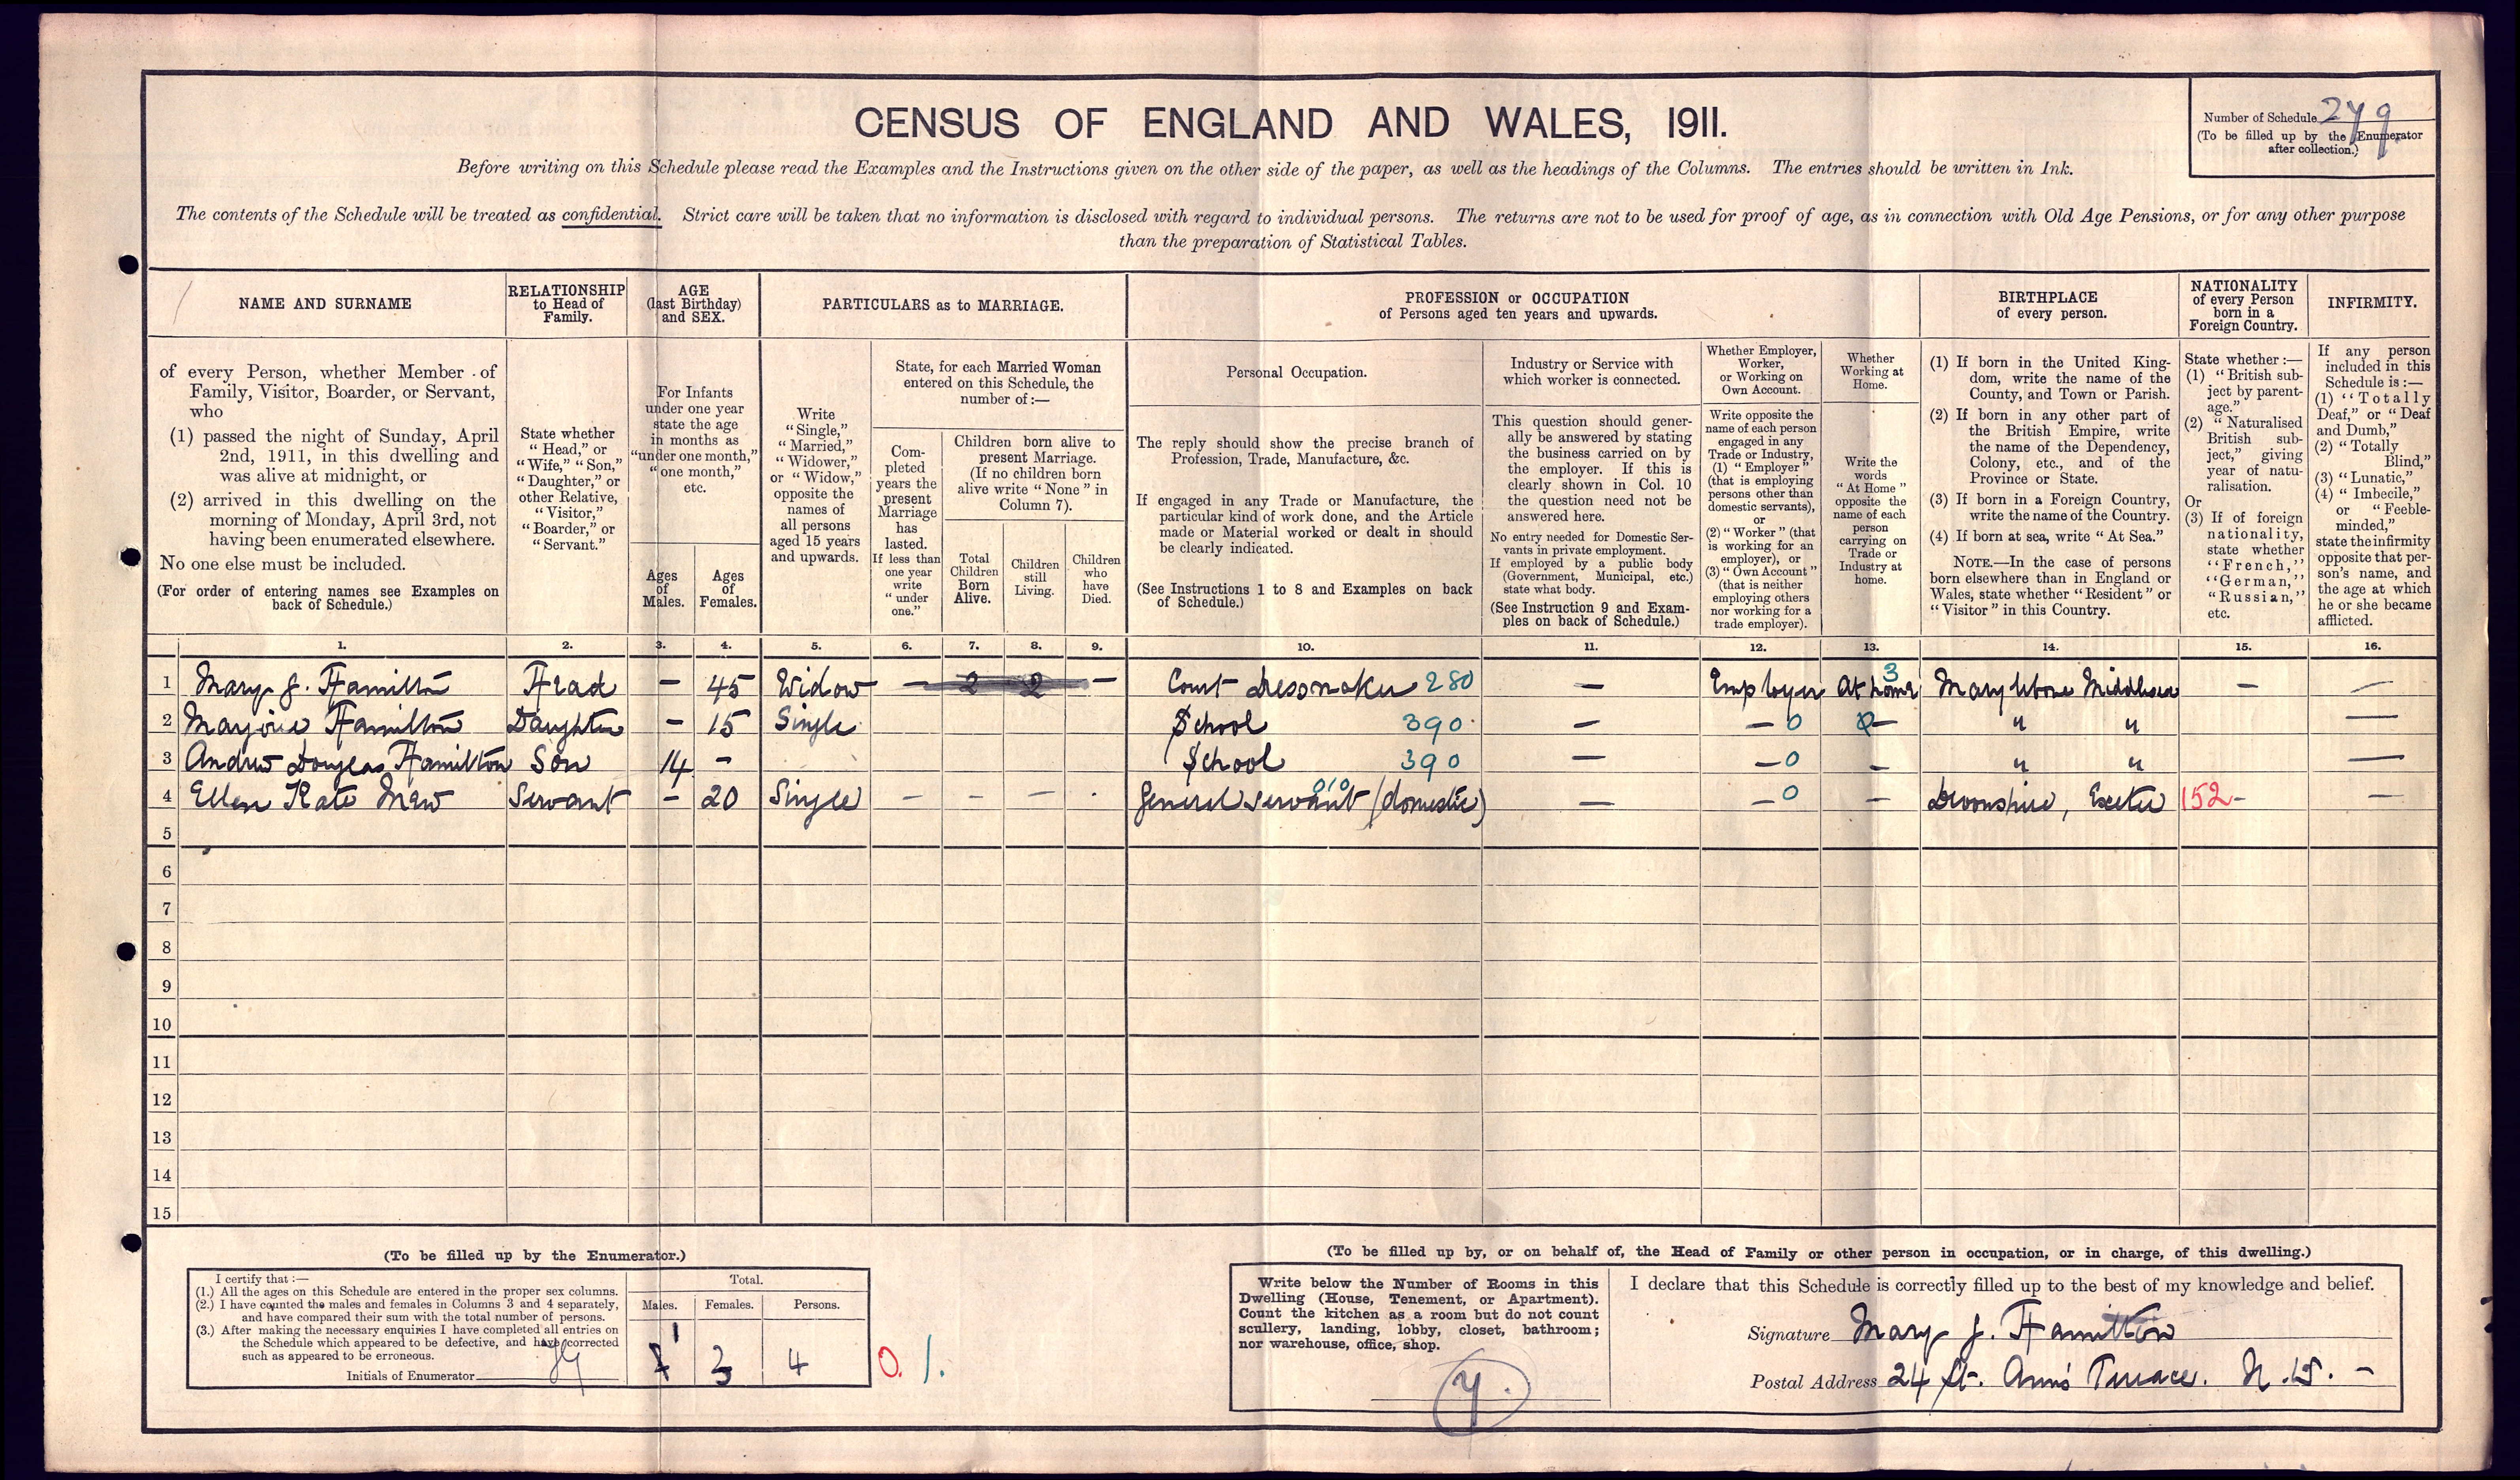 CENSUS OF ENGLAND AND WALES, 1911.
Number of Schedule 279
(To be filled up by the Enumerator
after collection.)
Before writing on this Schedule please read the Examples and the Instructions given on the other side of the paper, as well as the headings of the Columns. The entries should be written in Ink.
The contents of the Schedule will be treated as confidential. Strict care will be taken that no information is disclosed with regard to individual persons. The returns are not to be used for proof of age, as in connection with Old Age Pensions, or for any other purpose
than the preparation of Statistical Tables.
NAME AND SURNAME
of every Person, whether Member of
Family, Visitor, Boarder, or Servant,
who
(1) passed the night of Sunday, April
2nd, 1911, in this dwelling and
was alive at midnight, or
(2) arrived in this dwelling on the
morning of Monday, April 3rd, not
having been enumerated elsewhere.
No one else must be included.
(For order of entering names see Examples on
back of Schedule.)
RELATIONSHIP
to Head of
Family.
State whether
"Head," or
"Wife," "Son,"
"Daughter," or
other Relative,
"Visitor,"
"Boarder," or
"Servant."
AGE
(last Birthday)
and SEX.
For Infants
under one year
state the age
in months as
"under one month,"
"one month,"
etc.
Ages
of
Males.
Ages
of
Females.
PARTICULARS as to MARRIAGE.
Write
"Single,"
"Married,"
"Widower,"
or "Widow,"
opposite the
names of
all persons
aged 15 years
and upwards.
State, for each Married Woman
entered on this Schedule, the
number of:—
Com-
pleted
years the
present
Marriage
has
lasted.
If less than
one year
write
"under
one."
Children born alive to
present Marriage.
(If no children born
alive write "None" in
Column 7).
Total
Children
Born
Alive.
Children
still
Living.
Children
who
have
Died.
PROFESSION or OCCUPATION
of Persons aged ten years and upwards.
Personal Occupation.
The reply should show the precise branch of
Profession, Trade, Manufacture, &c.
If engaged in any Trade or Manufacture, the
particular kind of work done, and the Article
made or Material worked or dealt in should
be clearly indicated.
(See Instructions 1 to 8 and Examples on back
of Schedule.)
Industry or Service with
which worker is connected.
This question should gener-
ally be answered by stating
the business carried on by
the employer. If this is
clearly shown in Col. 10
the question need not be
answered here.
No entry needed for Domestic Ser-
vants in private employment.
If employed by a public body
(Government, Municipal, etc.)
state what body.
(See Instruction 9 and Exam-
ples on back of Schedule.)
Whether Employer,
Worker,
or Working on
Own Account.
Write opposite the
name of each person
engaged in any
Trade or Industry,
(1) "Employer"
(that is employing
persons other than
domestic servants),
or
(2) "Worker" (that
is working for an
employer), or
(3) "Own Account"
(that is neither
employing others
nor working for a
trade employer).
Whether
Working at
Home.
Write the
words
"At Home"
opposite the
name of each
person
carrying on
Trade or
Industry at
home.
BIRTHPLACE
of every person.
(1) If born in the United King-
dom, write the name of the
County, and Town or Parish.
(2) If born in any other part of
the British Empire, write
the name of the Dependency,
Colony, etc., and of the
Province or State.
(3) If born in a Foreign Country,
write the name of the Country.
(4) If born at sea, write "At Sea."
NOTE.—In the case of persons
born elsewhere than in England or
Wales, state whether "Resident" or
"Visitor" in this Country.
NATIONALITY
of every Person
born in a
Foreign Country.
State whether:—
(1) "British sub-
ject by parent-
age."
(2) "Naturalised
British sub-
ject," giving
year of natu-
ralisation.
Or
(3) If of foreign
nationality,
state whether
"French,"
"German,"
"Russian,"
etc.
INFIRMITY.
If any person
included in this
Schedule is:—
(1) "Totally
Deaf," or "Deaf
and Dumb,"
(2) "Totally
Blind,"
(3) "Lunatic,"
(4) "Imbecile,"
or "Feeble-
minded,"
state the infirmity
opposite that per-
son's name, and
the age at which
he or she became
afflicted.
1. 2. 3. 4. 5. 6. 7. 8. 9. 10. 11. 12. 13. 14. 15. 16.
1 Mary J. Hamilton Head — 45 Widow — 2 2 — Court Dressmaker 280 — Employer At home 3 Marylebone Middlesex — —
2 Marjorie Hamilton Daughter — 15 Single School 390 — — 0 — " " —
3 Andrew Douglas Hamilton Son 14 — School 390 — — 0 — " " —
4 Ellen Kate New Servant — 20 Single — — — General servant (domestic) 010 — — 0 — Devonshire, Exeter 152 — —
5
6
7
8
9
10
11
12
13
14
15
(To be filled up by the Enumerator.)
I certify that:—
(1.) All the ages on this Schedule are entered in the proper sex columns.
(2.) I have counted the males and females in Columns 3 and 4 separately,
and have compared their sum with the total number of persons.
(3.) After making the necessary enquiries I have completed all entries on
the Schedule which appeared to be defective, and have corrected
such as appeared to be erroneous.
Initials of Enumerator
Total.
Males. Females. Persons.
1 3 4
0. 1.
(To be filled up by, or on behalf of, the Head of Family or other person in occupation, or in charge, of this dwelling.)
Write below the Number of Rooms in this
Dwelling (House, Tenement, or Apartment).
Count the kitchen as a room but do not count
scullery, landing, lobby, closet, bathroom;
nor warehouse, office, shop.
7.
I declare that this Schedule is correctly filled up to the best of my knowledge and belief.
Signature Mary J. Hamilton
Postal Address 24 St. Ann's Terrace. N.W. —